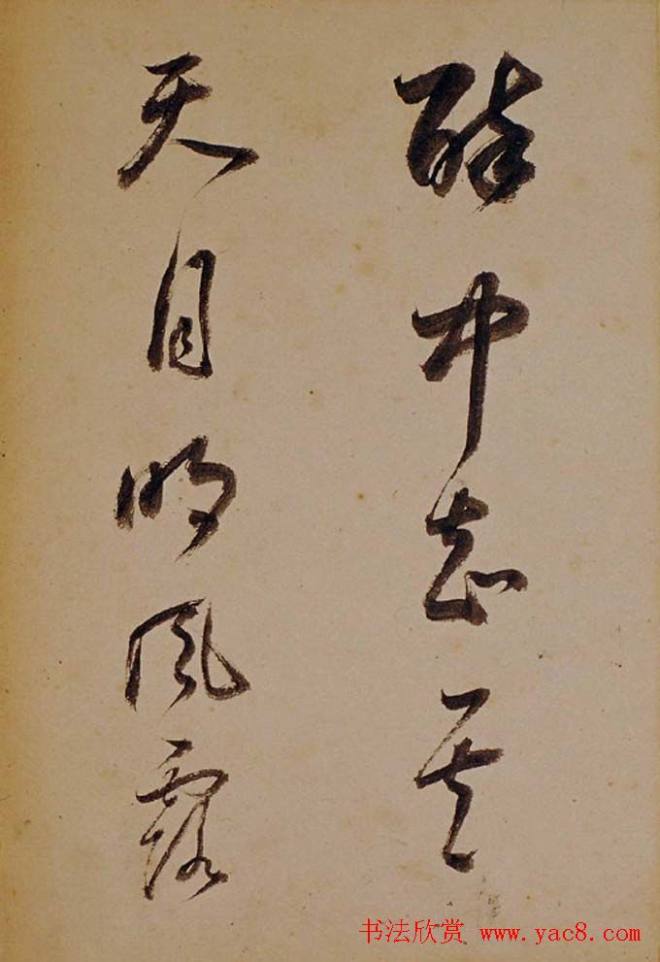 醉中
天月明風露
书法欣赏 www.yac8.com